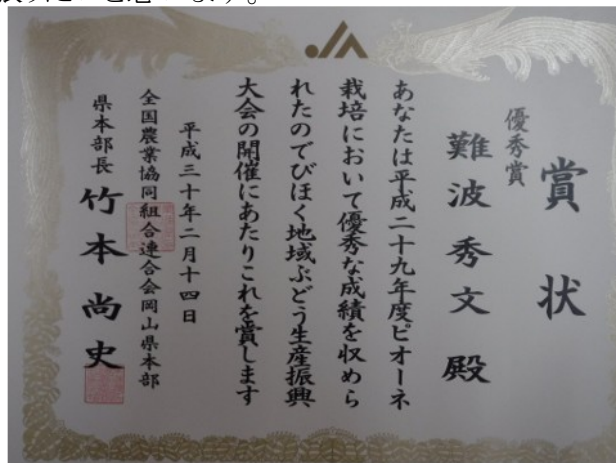 賞状
優秀賞
難波秀文殿
あなたは平成二十九年度ピオーネ
栽培において優秀な成績を収めら
れたのでびほく地域ぶどう生産振興
大会の開催にあたりこれを賞します
平成三十年二月十四日
全国農業協同組合連合会岡山県本部
県本部長 竹本尚史